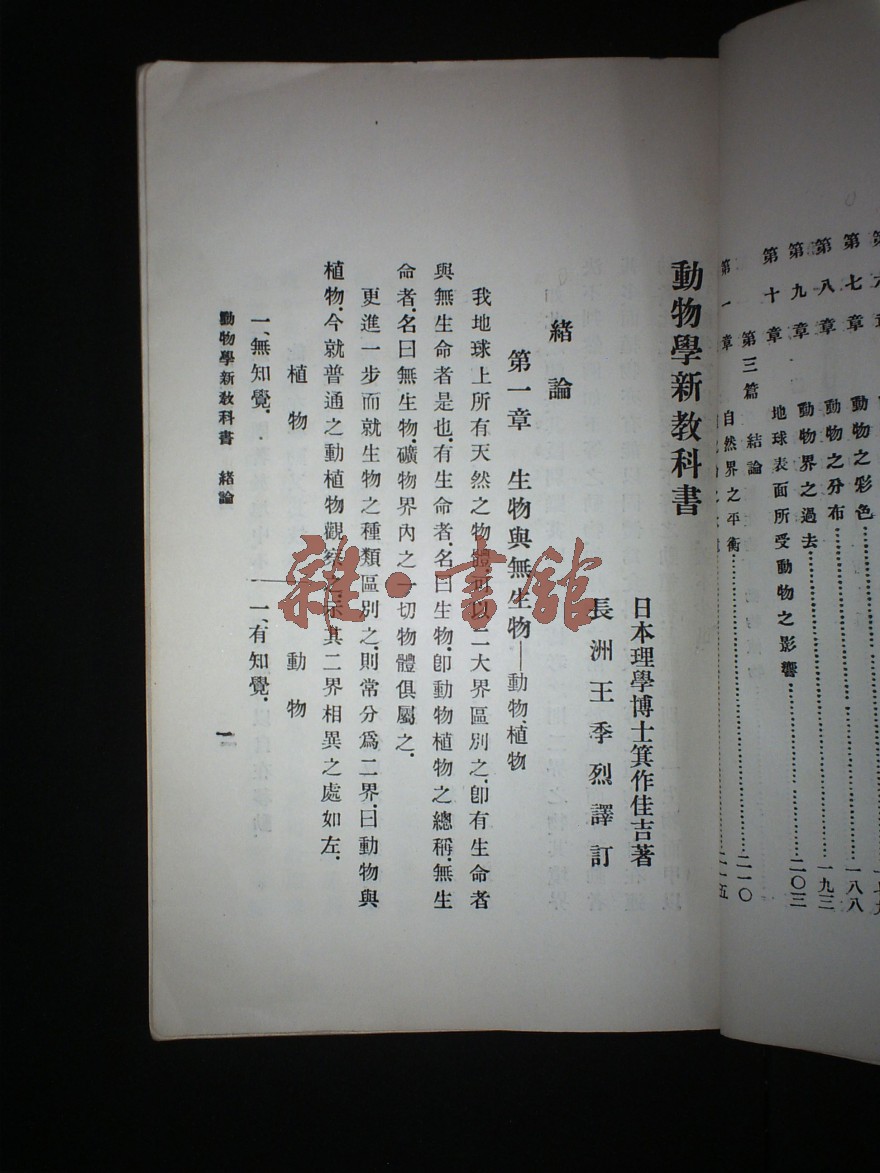 第七章
第八章 動物之彩色
第九章 動物之分布 一八八
第十章 動物界之過去 一九三
地球表面所受動物之影響 二〇三
第三篇 結論 二一〇
第一章 自然界之平衡 二一五
動物學新教科書
日本理學博士箕作佳吉著
長洲王季烈譯訂
緒論
第一章 生物與無生物—動物植物
我地球上所有天然之物體可以二大界區別之即有生命者
與無生命者是也有生命者名曰生物即動物植物之總稱無生
命者名曰無生物礦物界內之一切物體俱屬之
更進一步而就生物之種類區別之則常分爲二界曰動物與
植物今就普通之動植物觀察之示其二界相異之處如左
植物 動物
一、無知覺 一、有知覺
動物學新教科書 緒論 一
雜·書館